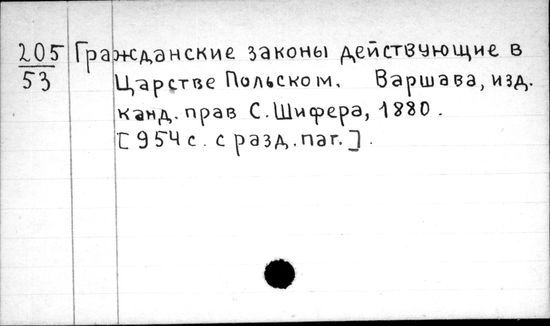 205 Гражданские законы действующие в
53 Царстве Польском. Варшава, изд.
канд. прав С. Шифера, 1880.
[954 с. с разд. паг.].